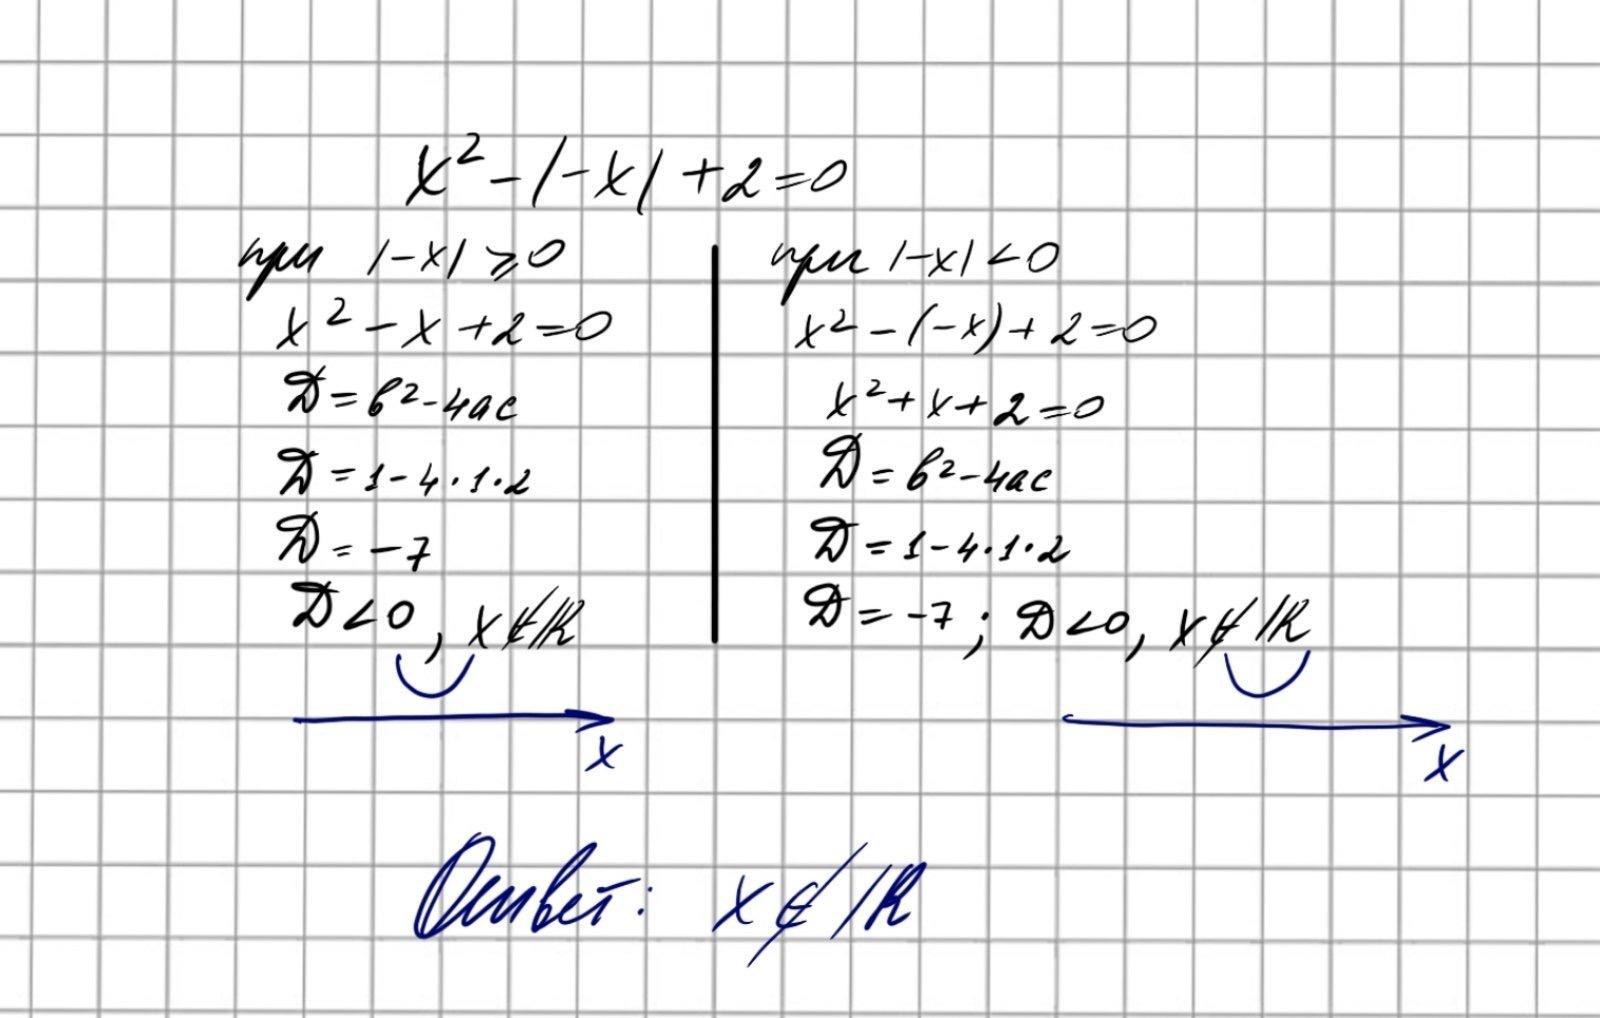 x² - |-x| + 2 = 0
при |-x| ⩾ 0
x² - x + 2 = 0
D = b² - 4ac
D = 1 - 4 · 1 · 2
D = -7
D < 0, x ∉ ℝ
x
при |-x| < 0
x² - (-x) + 2 = 0
x² + x + 2 = 0
D = b² - 4ac
D = 1 - 4 · 1 · 2
D = -7; D < 0, x ∉ ℝ
x
Ответ: x ∉ ℝ